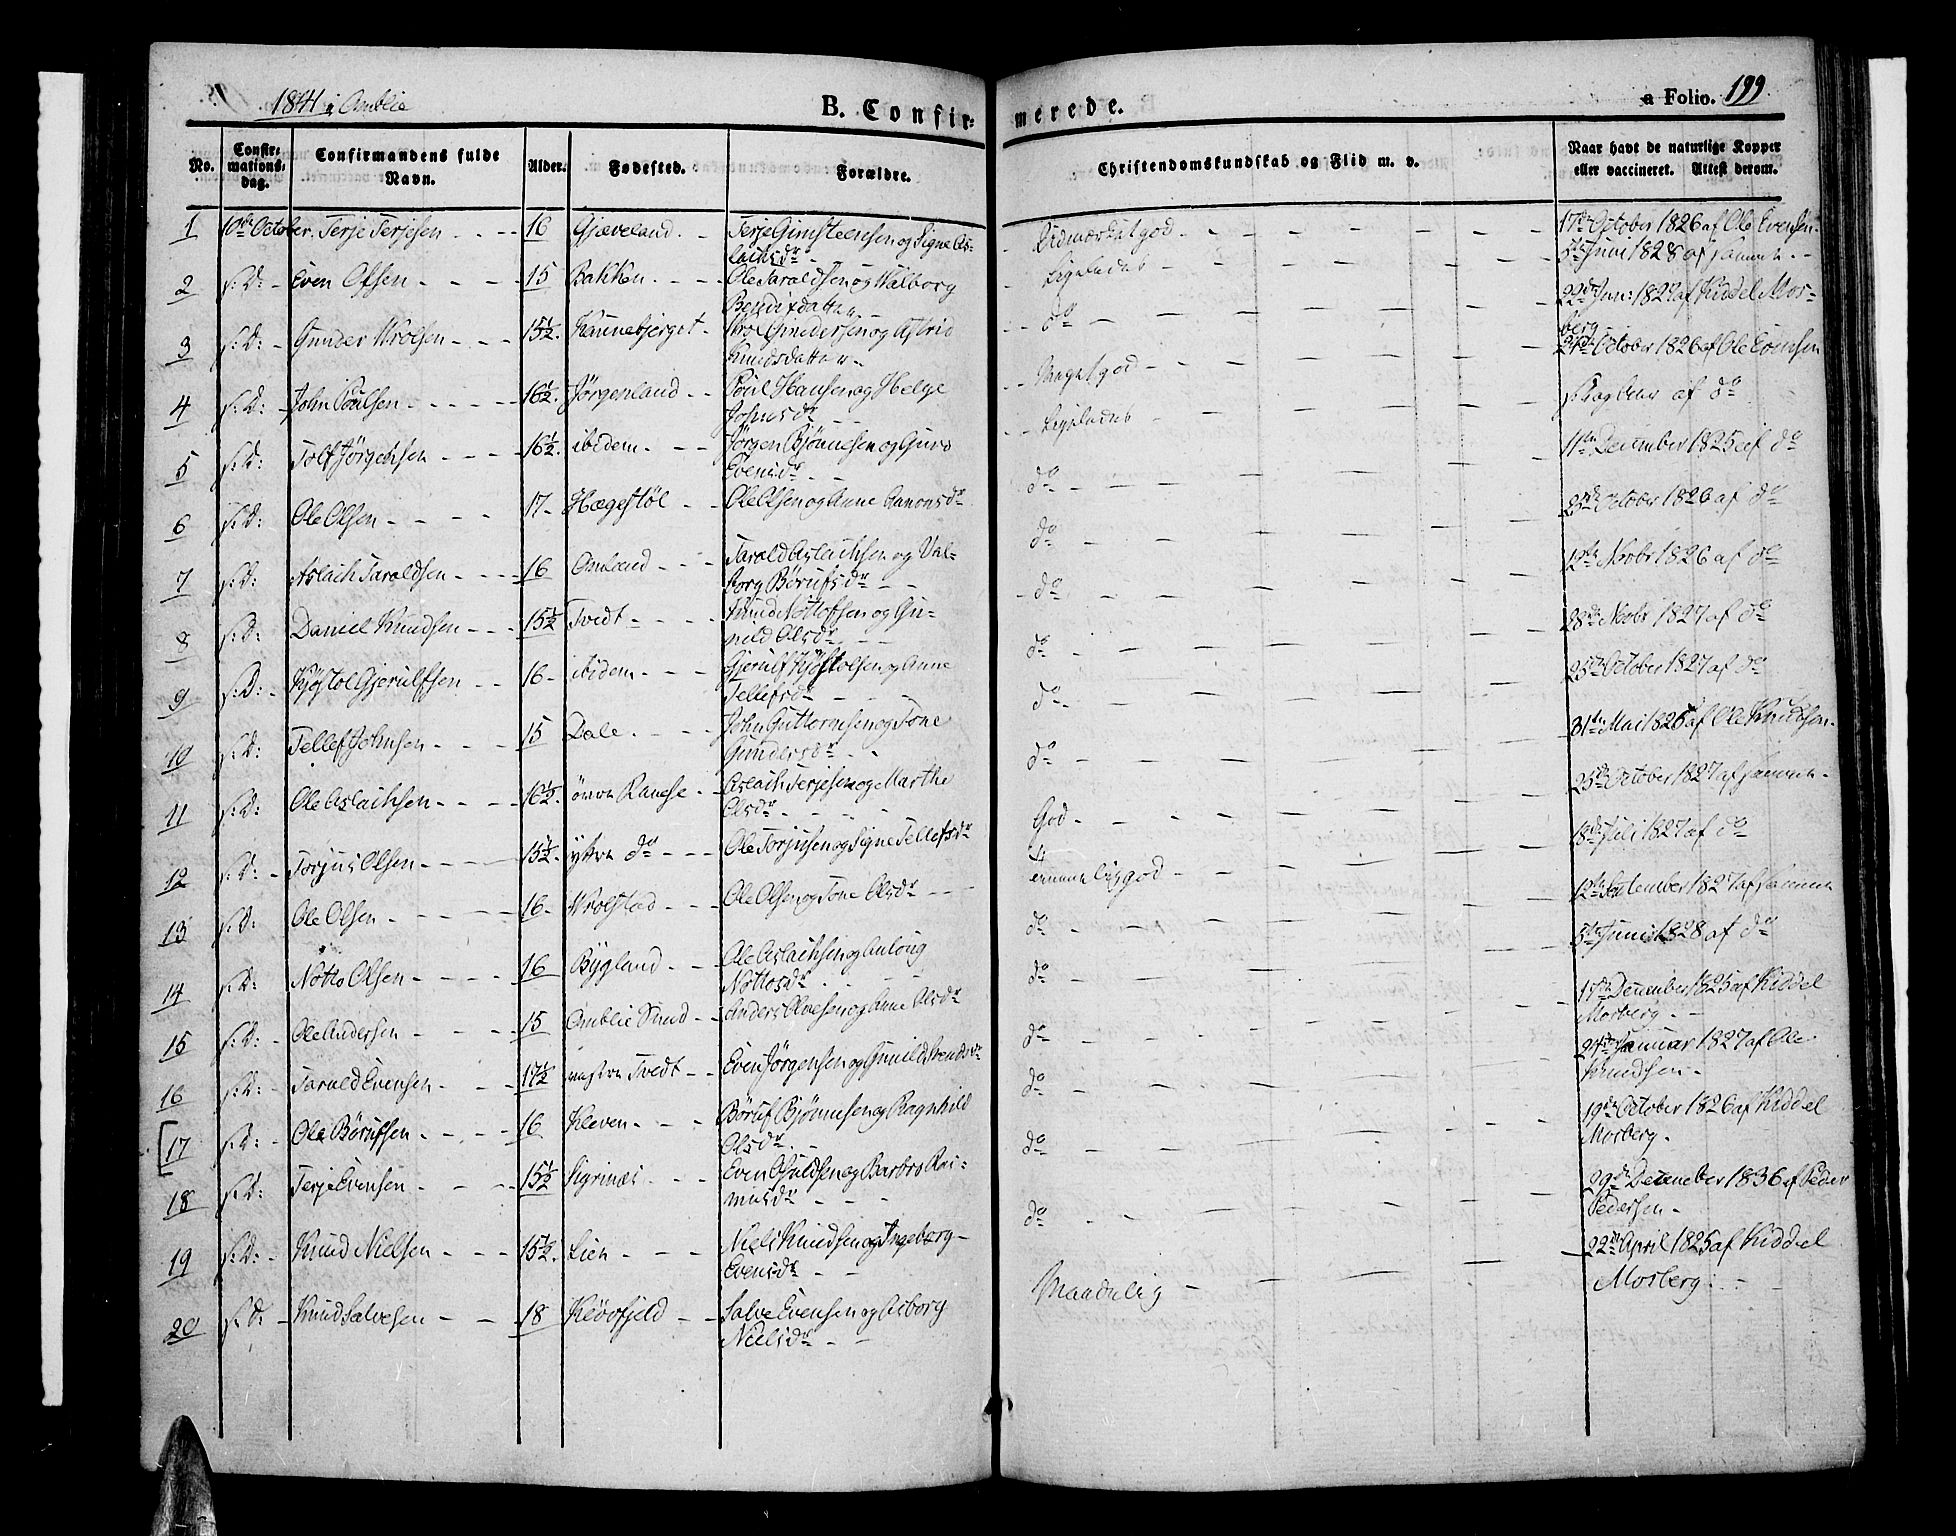 1841 i Omblie
B. Confirmerede.
a Folio. 199.
No.
Confirmationsdag.
Confirmandens fulde Navn.
Alder.
Fødested.
Forældre.
Christendomskundskab og Flid m. v.
Naar havt de naturlige Kopper eller vaccineret. Attest derom.
1 10de October. Terje Terjesen 16 Gjæveland. Terje Gunsteensen og Signe Aslachsdr Udmærket god 17de October 1826 af Ole Evensen
2 s: D: Even Olsen 15 Bakken Ole Taraldsen og Walborg Bendixdatter Ligeledes 5te Juni 1828 af samme
3 s: D: Gunder Wrolsen 15½ Wrol Gundersen og Astrid Knudsdatter do 22de Jan: 1827 af Kiddel Morberg
4 s: D: John Poulsen 16½ Jörgenland Poul Hansen og Helge Johnsdr Meget god October 1826 af Ole Evensen
5 s: D: Tolf Jörgensen 16½ ibidem Jörgen Björnsen og Guro Evensdr Ligeledes af do
6 s: D: Ole Olsen 17 Hægestöl Ole Olsen og Anne Aanonsdr do 11te December 1825 af do
7 s: D: Aslach Taraldsen 16 Omland Tarald Aslachsen og Valborg Börufsdr do 25de October 1826 af do
8 s: D: Daniel Knudsen 15½ Tvedt Knud Nottolfsen og Gunild Olsdr do 12te Novbr 1826 af do
9 s: D: Kjöstol Gjerulfsen 16 ibidem Gjerulf Kjöstolsen og Anne Tellefsdr do 28de Novbr 1827 af do
10 s: D: Tellef Johnsen 15 Dale John Guttormsen og Tone Gundersdr do 25de October 1827 af do
11 s: D: Ole Aslachsen 16½ övre Ramse Aslach Terjesen og Marthe Olsdr do 31te Mai 1826 af Ole Knudsen
12 s: D: Torjus Olsen 15½ ytre do Ole Torjusen og Signe Tellefsdr God 25de October 1827 af samme
13 s: D: Ole Olsen 16 Wrolstad Ole Olsen og Tone Olsdr temmelig god 18de Juli 1827 af do
14 s: D: Notto Olsen 16 Bygland Ole Aslachsen og Anlaug Nottosdr do 12te September 1827 af samme
15 s: D: Ole Andersen 15 Omblie Sund Anders Olvesen og Anne Olsdr do 5te Juni 1828 af do
16 s: D: Tarald Evensen 17½ Tvedt Even Jörgensen og Gunild do 17de December 1825 af Kiddel Morberg
17 s: D: Ole Börufsen 16 Kleven Böruf Björnsen og Ragnhild Olsdr do Januar 1827 af Ole Knudsen
18 s: D: Terje Evensen 15½ Sigrinæs Even og Barbro do 19de October 1826 af Kiddel Morberg
19 s: D: Knud Nielsen 15½ Lien Niels Knudsen og Ingeborg Evensdr do 29de December 1836 af Peder Pedersen
20 s: D: Knud Salvesen 18 Klövfjeld Salve Evensen og Asborg Nielsdr Maadelig 22de April 1825 af Kiddel Morberg